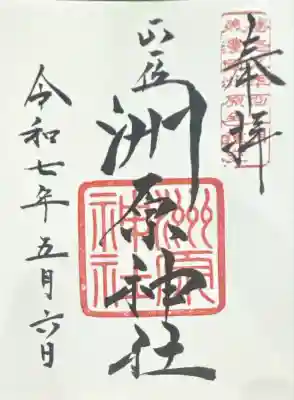 奉拝
正一位
洲原神社
洲原
神社
令和七年五月六日